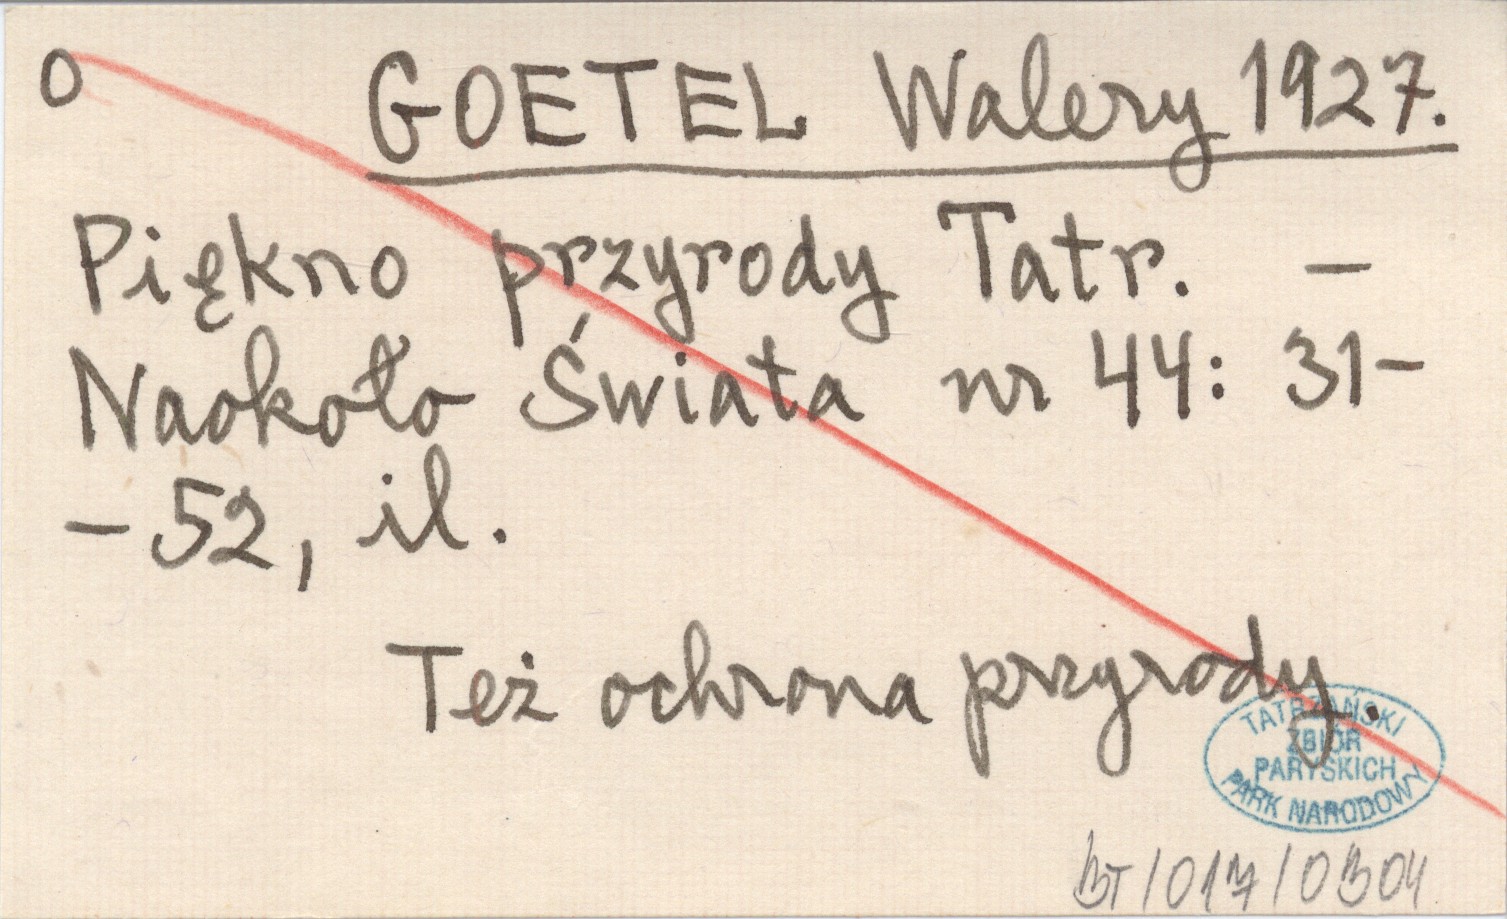 O GOETEL Walery 1927.
Piękno przyrody Tatr. –
Naokoło Świata nr 44: 31–
– 52, il.
Też ochrona przyrody.
TATRZAŃSKI
ZBIÓR
PARYSKICH
PARK NARODOWY
BT/017/0304